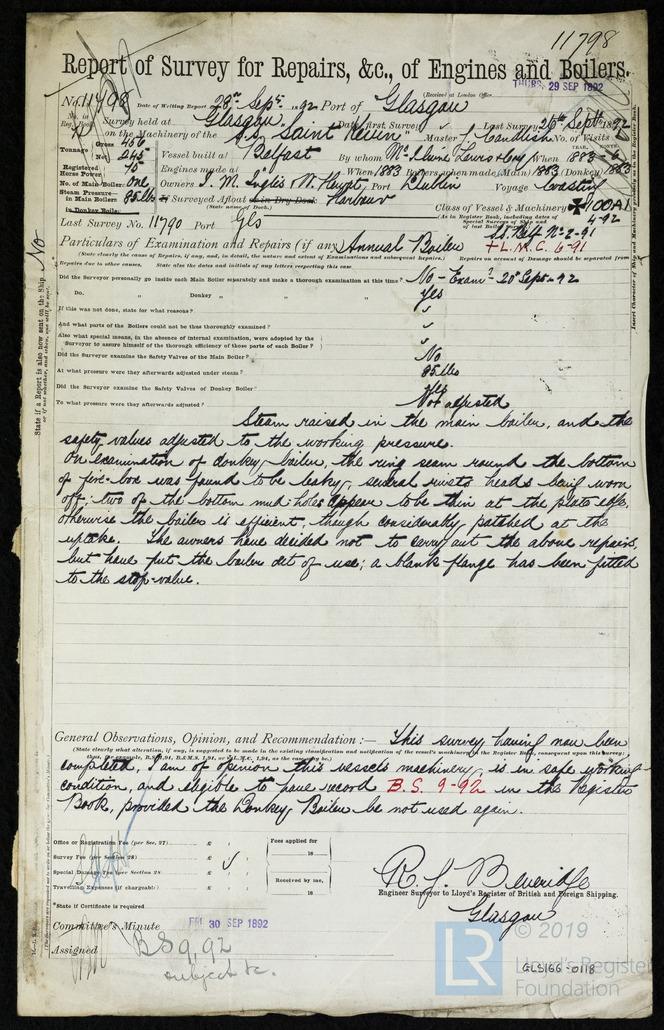 11798
Report of Survey for Repairs, &c., of Engines and Boilers.
(Received at London Office THURS. 29 SEP 1892
No. 11798 Date of Writing Report 28th Septr. 1892 Port of Glasgow
No. in Reg. Book. Survey held at Glasgow Date, first Survey Last Survey 26th Septr 1892
on the Machinery of the S.S. "Saint Kevin" Master J. Candlish No. of Visits
Tonnage Gross 456 Net 245 Vessel built at Belfast By whom McIlwaine Lewis & Coy When 1883-6
Registered Horse Power 75 Engines made at When 1883 Boilers, when made (Main) 1883 (Donkey) 1883
No. of Main Boilers one Owners J. M. Inglis & W. Port Dublin Voyage Coasting
Steam Pressure in Main Boilers 85 lbs If Surveyed Afloat or in Dry Dock Harbour
(State name of Dock.)
in Donkey Boiler
Class of Vessel & Machinery 100A1
(As in Register Book, including dates of Special Surveys of Ship and of last Boiler
4-92
Last Survey No. 11790 Port Gls
+L.M.C. 6-91
Particulars of Examination and Repairs (if any) Annual Boiler
(State clearly the cause of Repairs, if any, and, in detail, the nature and extent of Examinations and subsequent Repairs.) Repairs on account of Damage should be separated from
Repairs due to other causes. State also the dates and initials of any letters respecting this case.
Did the Surveyor personally go inside each Main Boiler separately and make a thorough examination at this time? No - Examd. 20th Sept-92
Do. " Donkey " " " Yes
If this was not done, state for what reasons?
And what parts of the Boilers could not be thoroughly examined?
Also what special means, in the absence of internal examination, were adopted by the
Surveyor to assure himself of the thorough efficiency of those parts of each Boiler?
Did the Surveyor examine the Safety Valves of the Main Boiler? No
At what pressure were they afterwards adjusted under steam? 85 lbs
Did the Surveyor examine the Safety Valves of Donkey Boiler? Yes
To what pressure were they afterwards adjusted? Not adjusted
Steam raised in the main boiler, and the
safety valves adjusted to the working pressure.
On examination of donkey boiler, the ring seam round the bottom
of fire-box was found to be leaky, several rivets heads being worn
off; two of the bottom mud-holes appear to be thin at the plate edge,
otherwise the boiler is efficient, though considerably patched at the
uptake. The owners have decided not to carry out the above repairs,
but have put the boiler out of use; a blank flange has been fitted
to the stop-value.
General Observations, Opinion, and Recommendation :— This survey having now been
(State clearly what alteration, if any, is suggested to be made in the existing classification and notification of the vessel's machinery in the Register Book, consequent upon this survey;
completed, I am of opinion this vessels machinery, is in safe working
condition, and eligible to have record B.S. 9-92 in the Register
Book, provided the Donkey Boiler be not used again.
Office or Registration Fee (per Sec. 27) £ : :
Survey Fee (per Section 28) £ : :
Special Damage Fee (per Section 28 £ : :
Travelling Expenses (if chargeable) £ : :
Fees applied for
18
Received by me,
18
*State if Certificate is required
R. J. Beveridge
Engineer Surveyor to Lloyd's Register of British and Foreign Shipping.
Glasgow
Committee's Minute FRI. 30 SEP 1892
Assigned BS 9,92
subject &c.
State if a Report is also now sent on the Ship No
or if not, whether, and when, one will be sent.
LR
© 2019
Lloyd's Register
Foundation
GLS166-0118